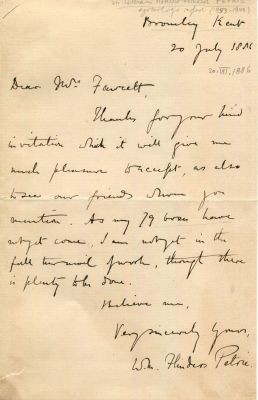 Sir William Matthew Flinders Petrie
(1853-1942)
Bromley Kent
20 July 1886
20.VII.1886
Dear Mrs Fawcett,
Thanks for your kind
invitation which it will give me
much pleasure to accept, as also
to see our friends whom you
mention. As my 79 boxes have
not yet come, I am not yet in the
full turmoil of work, though there
is plenty to be done.
Believe me,
Very sincerely Yours,
Wm. Flinders Petrie.